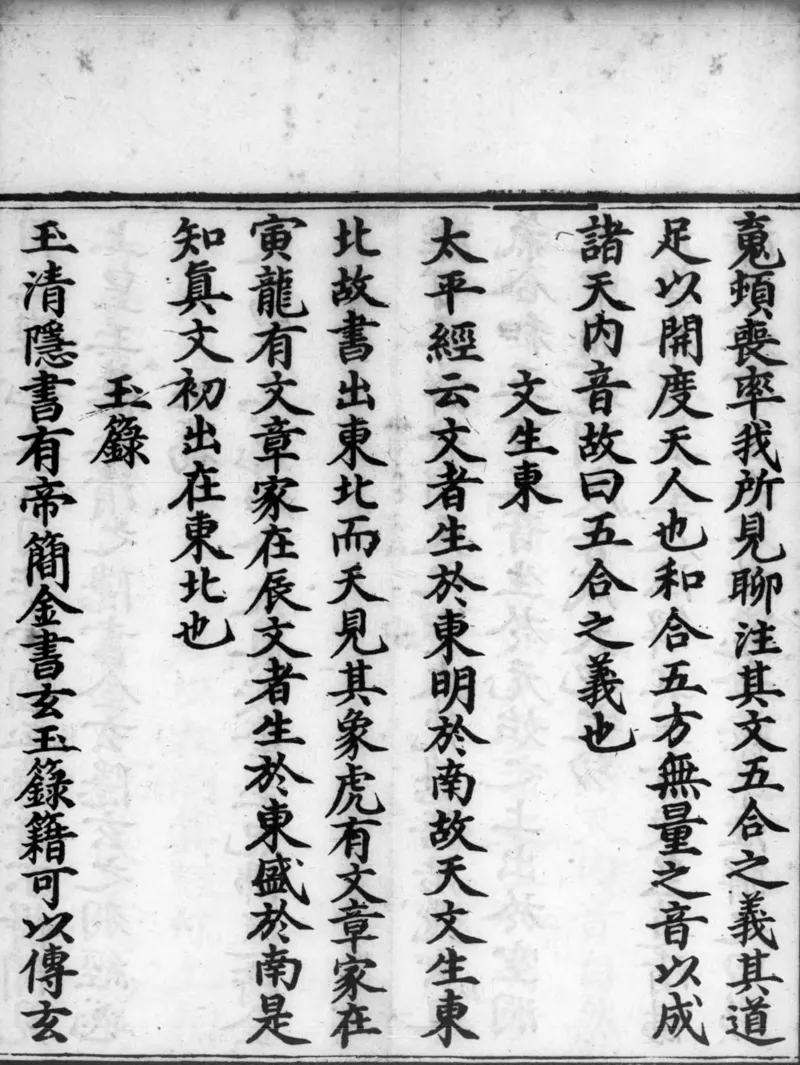 䰟頓喪率我所見聊注其文五合之義其道
足以開度天人也和合五方無量之音以成
諸天內音故曰五合之義也
文生東
太平經云文者生於東明於南故天文生東
北故書出東北而天見其象虎有文章家在
寅龍有文章家在辰文者生於東盛於南是
知真文初出在東北也
玉籙
玉清隱書有帝簡金書玄玉籙籍可以傳玄